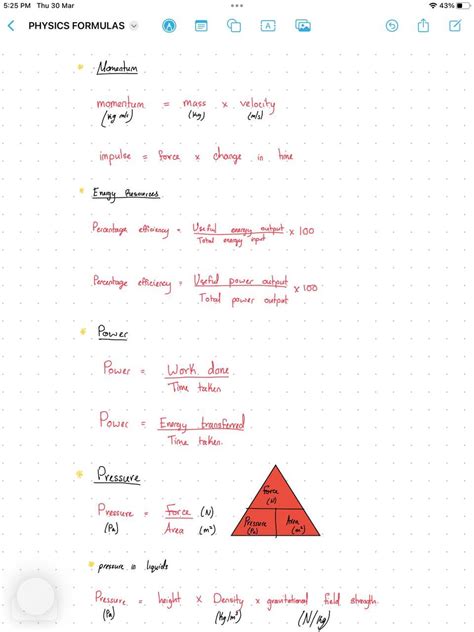 5:25 PM Thu 30 Mar
43%
PHYSICS FORMULAS
A
Momentum
momentum = mass x velocity
(kg m/s) (kg) (m/s)
impulse = force x change in time
Energy Resources
Percentage efficiency = Useful energy output x 100
Total energy input
Percentage efficiency = Useful power output x 100
Total power output
Power
Power = Work done
Time taken
Power = Energy transferred
Time taken
Pressure
Pressure = Force (N)
(Pa) Area (m²)
Force
(N)
Pressure Area
(Pa) (m²)
pressure in liquids
Pressure = height x Density x gravitational field strength
(Pa) (kg/m³) (N/kg)